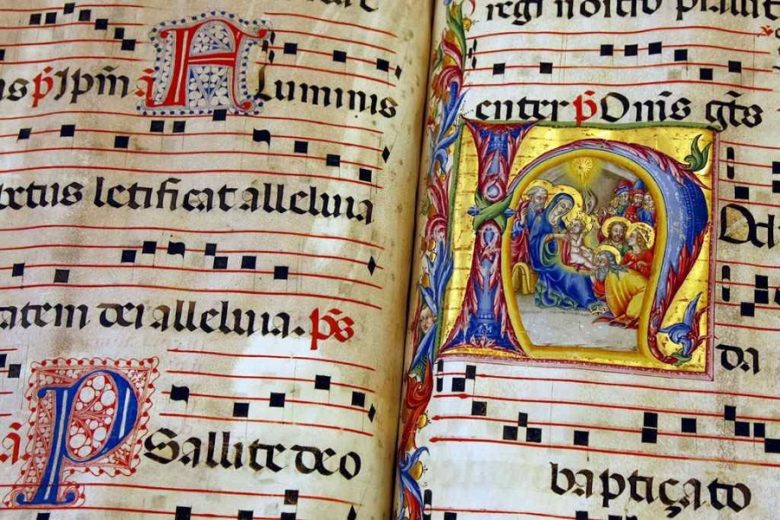 us p̄s Ip̄m ā Fluminis
etus letificat alleluia
atem dei alleluia. p̄s
ā Psallite deo
regi nostro psallite
enter p̄s Om̄s gt̄s
H
da
baptiçato